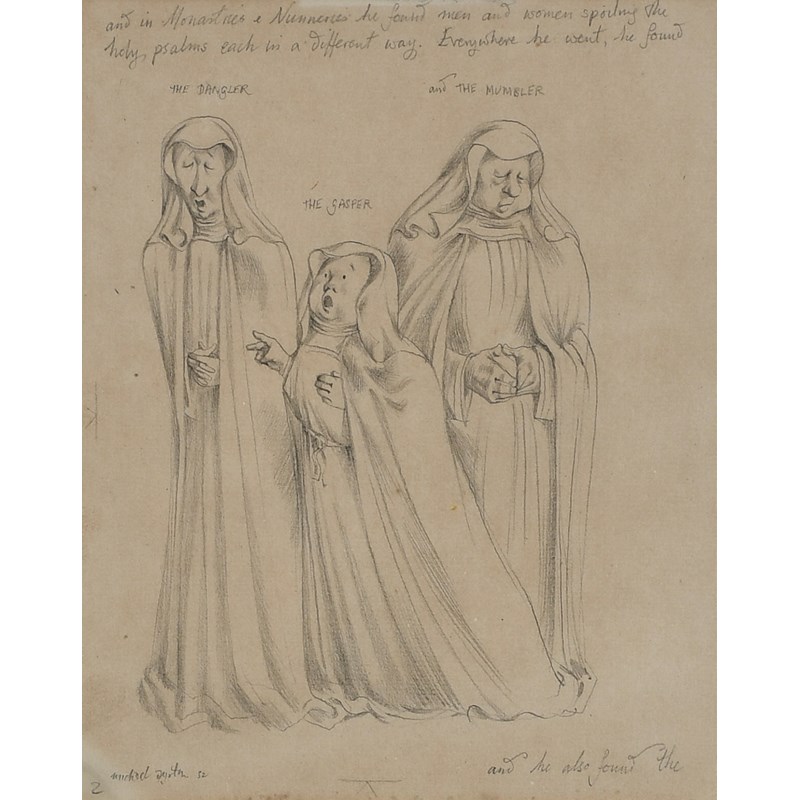 and in Monastries & Nunneries he found men and women spoiling the
holy psalms each in a different way. Everywhere he went, he found
THE DANGLER
and THE MUMBLER
THE GASPER
and he also found the
michael ayrton 52
2